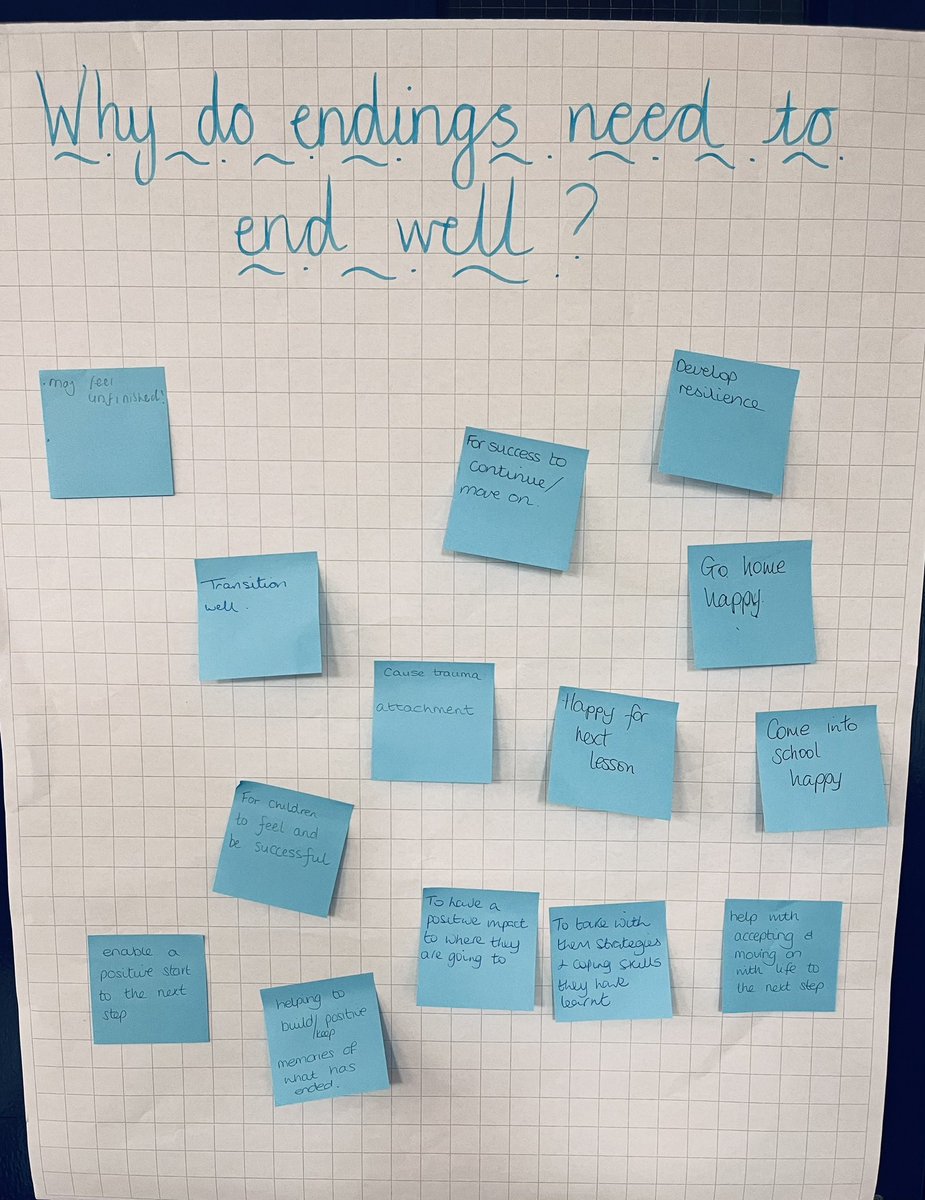 Why do endings need to
end well?
. may feel
unfinished!
Develop
resilience
For success to
continue/
move on.
Transition
well.
Go home
happy.
Cause trauma
attachment
Happy for
next
lesson
Come into
school
happy
For children
to feel and
be successful
To have a
positive impact
to where they
are going to
To take with
them strategies
& coping skills
they have
learnt
help with
accepting &
moving on
with life to
the next step
enable a
positive start
to the next
step
helping to
build/positive
keep
memories of
what has
ended.